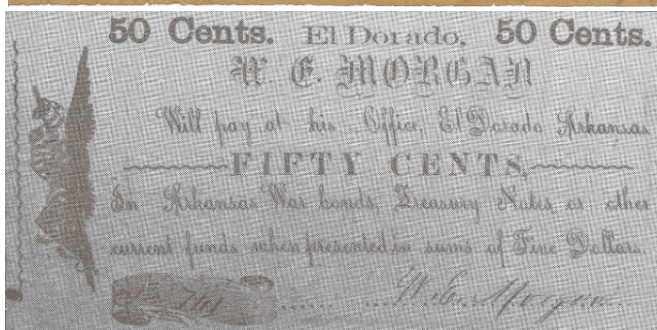 50 Cents. El Dorado, 50 Cents.
W. E. MORGAN
Will pay at his Office, El Dorado Arkansas
FIFTY CENTS,
In Arkansas War bonds, Treasury Notes, or other
current funds when presented in sums of Five Dollars.
Morgan